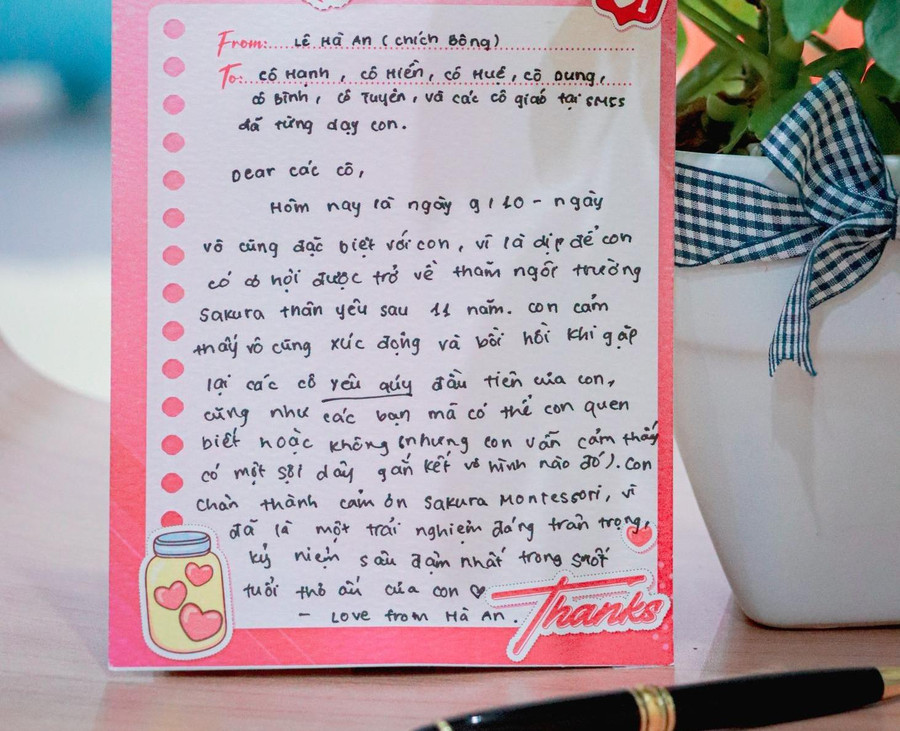 From: Lê Hà An (Chích Bông)
To: cô Hạnh, cô Hiền, cô Huệ, cô Dung,
cô Bình, cô Tuyên, và các cô giáo tại SMSS
đã từng dạy con.
Dear các cô,
Hôm nay là ngày 9/10 - ngày
vô cùng đặc biệt với con, vì là dịp để con
có cơ hội được trở về thăm ngôi trường
Sakura thân yêu sau 11 năm. Con cảm
thấy vô cùng xúc động và bồi hồi khi gặp
lại các cô yêu quý đầu tiên của con,
cũng như các bạn mà có thể con quen
biết hoặc không (nhưng con vẫn cảm thấy
có một sợi dây gắn kết vô hình nào đó). Con
chân thành cảm ơn Sakura Montessori, vì
đã là một trải nghiệm đáng trân trọng,
kỷ niệm sâu đậm nhất trong suốt
tuổi thơ ấu của con ♡
- Love from Hà An.
Thanks